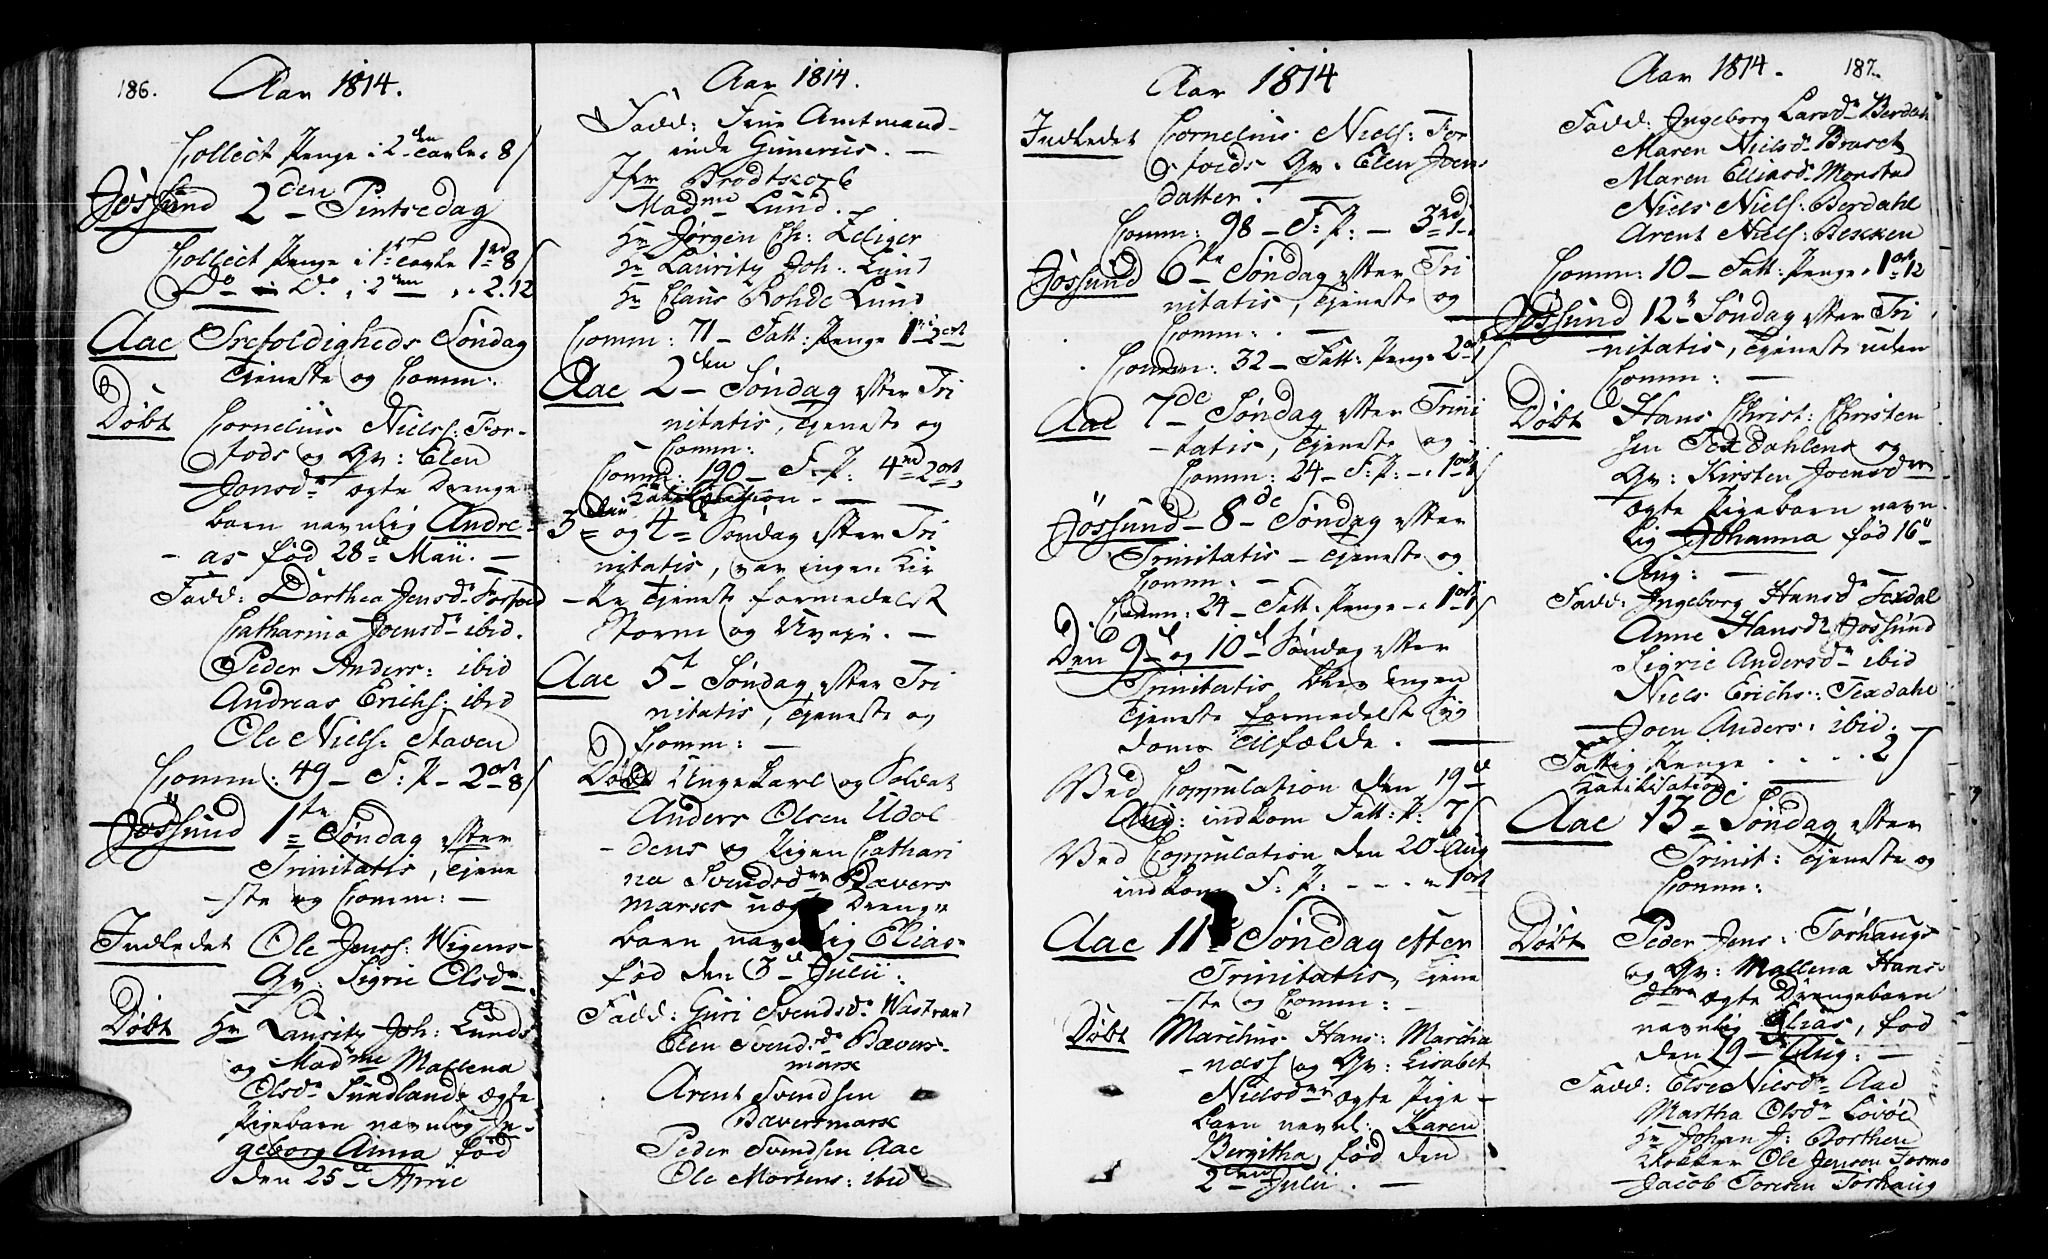 186.
Aar 1814.
Collect Penge i 2den Tavle 8 s
Jössund 2den Pintsedag
Collect Penge i 1ste Tavle 1 8 s
Do i Do i 2den .. 2.12
Aae Trefoldigheds Söndag
Tjeneste og Comm:
Döbt Cornelius Niels: For-
fods og Qv: Elen
Jonsdr ægte Drenge
barn navnlig Andre-
as fød 28de Maii. —
Fadd: Dorthea Jensdr Forfod
Catharina Joensdr ibid.
Peder Anders: ibid
Andreas Erichs: ibid
Ole Niels: Staven
Comm: 49 — F: P — 2 ort 8 s
Jössund 1ste Söndag efter
Trinitatis, Tjene
-ste og Comm: —
Indledet Ole Jenss: Wigens
Qv: Sigrie Olsdr.
Döbt Hr Lauritz Joh: Lunds
og Madme Mallena
Olsdr Sundland ægte
Pigebarn navnlig In-
geborg Anna fød
den 25de April
Aar 1814.
Fadd: Frue Amtmand-
inde Gunerus. —
Jfr Brodtkorb
Madme Lund. —
Hr Jørgen Ch: Ediger
Hr Lauritz Joh: Lund
Hr Claus Rohde Lund
Comm: 71 — Fatt: Penge 1 2 ort
Aae 2den Söndag efter Tri
nitatis, Tjeneste og
Comm:
Comm: 190 — F: P: 4 2 ort
Katikisation. —
3die og 4de Söndag efter Tri
nitatis, var ingen Kir
-ke Tjeneste formedelst
Storm og Uveir. —
Aae 5te Söndag efter Tri
nitatis, Tjeneste og
Comm: —
Döbt Ungekarl og Soldat
Anders Olsen Udal
-dens og Pigen Cathari
na Svendsdr Bævers
marses uægte Drenge
barn navnlig Elias
fød den 3de Julii.
Fadd: Guri Svendsdr Wastrand
Elen Svendsdr Bævers-
marse
Arent Svendsen
Bæversmarse
Peder Svendsen Aae
Ole Mortens: ibid
Aar 1814
Indledet Cornelius Niels: For
foeds Qv: Elen Joens
datter. —
Comm: 98 — F: P: — 3
Jössund 6te Söndag efter Tri
nitatis, Tjeneste og
Comm: . —
Comm: 32 — Fatt: Penge 2
Aae 7de Söndag efter Trini
-tatis, Tjeneste og
Comm: 24 — F: P: — 1 ort
Jössund 8de Söndag efter
Trinitatis — Tjeneste og
Comm. —
Comm: 24 — Fatt: Penge — 1 ort
Den 9de og 10de Söndag efter
Trinitatis blev ingen
Tjeneste formedelst Syg
doms Tilfælde. —
Ved Copulation den 19de
Aug: indkom Fatt: P: 7 s
Ved Copulation den 20 Aug
indkom F: P: - - - 1 ort
Aae 11te Söndag efter
Trinitatis, Tjene
-ste og Comm: —
Döbt Marchus Hans: Marcha
-næss og Qv: Lisabet
Nielsdrs ægte Pige-
barn navnl: Karen
Bergitha, fød den
2den Julii. —
Aar 1814. 187.
Fadd: Ingeborg Larsdr Berdahl
Maren Nielsdr Braset
Maren Elliasdr Monstad
Niels Niels: Berdahl
Arent Niels: Bekken
Comm: 10 — Fatt: Penge 1 ort 12
Jössund 12te Söndag efter Tri
-nitatis, Tjeneste uden
Comm: —
Döbt Hans Christ: Christen
sen Texdahlens og
Qv: Kirsten Joensdr
ægte Pigebarn navn
lig Johanna fød 16de
Aug: —
Fadd: Ingeborg Hansdr Texdal
Anne Hansdr Jössund
Sigrie Andersdr ibid
Niels Erichs: Texdahl
Joen Anders: ibid. —
Fattig Penge . . . . 2 s
Katikisation
Aae 13de Söndag efter
Trinit: Tjeneste og
Comm:
Döbt Peder Jens: Torhaugs
og Qv: Mallena Hans-
drs ægte Drengebarn
navnlig Elias, fød
den 29de Aug: —
Fadd: Else Nielsdr Aae
Martha Olsdr Lövöe
Hr Johan J: Borthen
Klokker Ole Jensen Formo
Jacob Toresen Torhaug